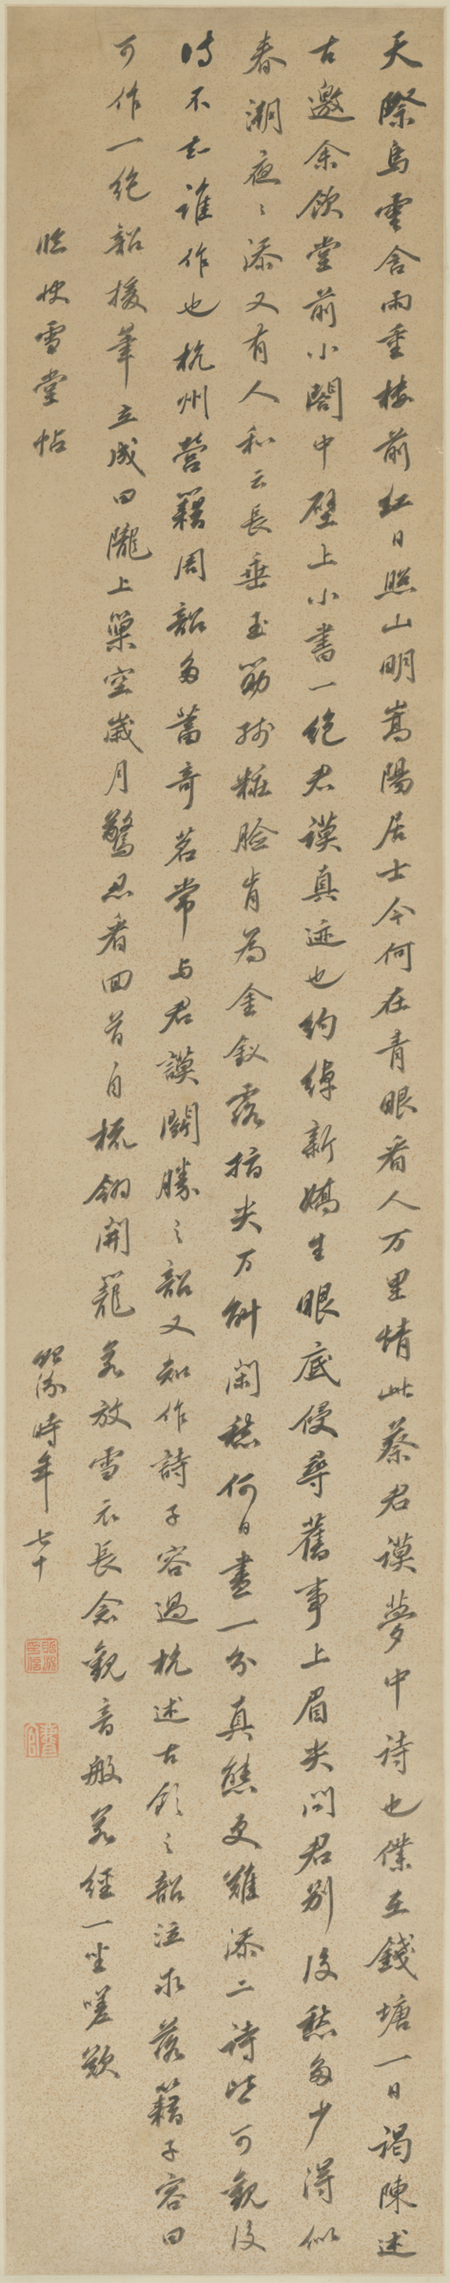 天際烏雲含雨重樓前紅日照山明嵩陽居士今何在青眼看人万里情此蔡君謨夢中詩也僕在錢塘一日謁陳述
古邀余飲堂前小閣中壁上小書一絕君謨真迹也約綽新嬌生眼底侵尋舊事上眉尖問君別後愁多少得似
春潮夜〻添又有人和云長垂玉筯殘粧臉肯為金釵露指尖万斛閑愁何日盡一分真態更難添二詩皆可觀後
詩不知誰作也杭州營籍周韶多蓄奇茗常与君謨鬭勝〻韶又知作詩子容過杭述古飲〻韶泣求落籍子容曰
可作一絕韶援筆立成曰隴上巢空歲月驚忍看回首自梳翎開籠若放雪衣長念觀音般若經一坐嗟歎
臨快雪堂帖
時年七十